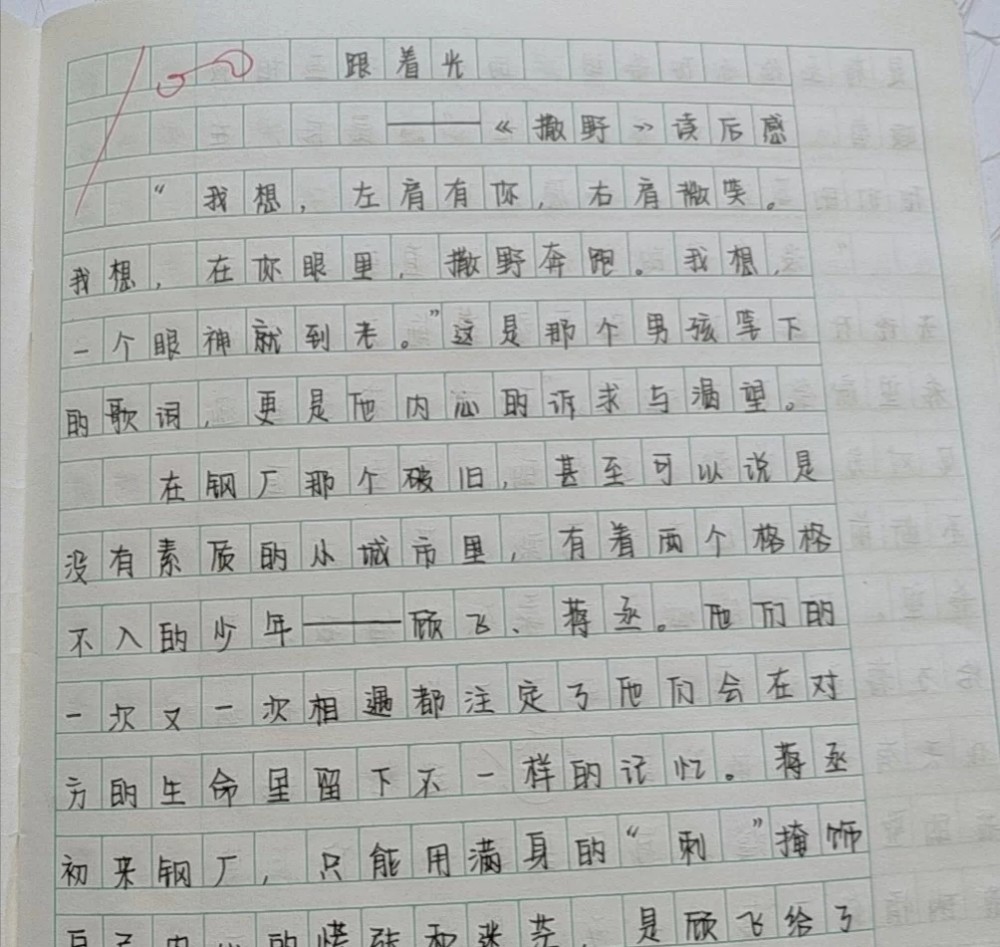 跟着光
——《撒野》读后感
“我想，左肩有你，右肩微笑。
我想，在你眼里，撒野奔跑。我想，
一个眼神就到老。”这是那个男孩写下
的歌词，更是他内心的诉求与渴望。
在钢厂那个破旧，甚至可以说是
没有素质的小城市里，有着两个格格
不入的少年——顾飞、蒋丞。他们的
一次又一次相遇都注定了他们会在对
方的生命里留下不一样的记忆。蒋丞
初来钢厂，只能用满身的“刺”掩饰
自己内心的怪和迷茫，是顾飞给了